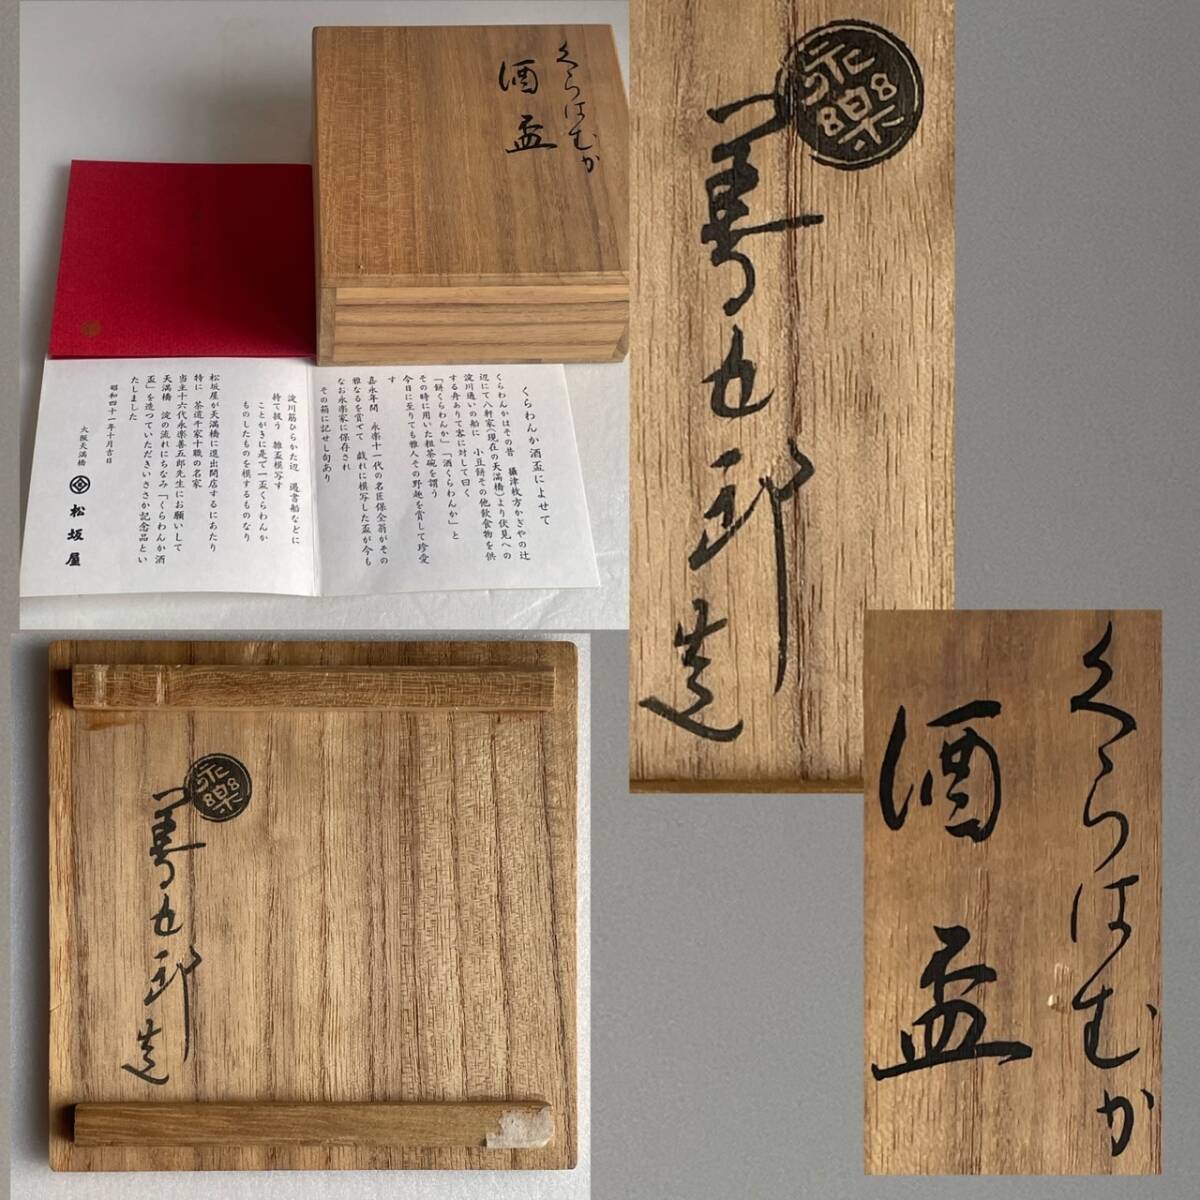 くらはむか
酒盃
くらわんか酒盃によせて
くらわんかはその昔 攝津枚方かぎやの辻
辺にて八軒家(現在の天満橋)より伏見への
淀川通いの船に 小豆餅その他飲食物を供
する舟ありて客に対して曰く
「餅くらわんか」「酒くらわんか」と
その時に用いた粗茶碗を謂う
今日に至りても雅人その野趣を賞して珍愛
す
嘉永年間 永楽十一代の名匠保全翁がその
雅なるを賞でて 戯れに模写した盃が今も
なお永楽家に保存され
その箱に記せし句あり
淀川筋ひらかた辺 過書船などに
持て扱う 雅盃模写す
ことがきに是で一盃くらわんか
ものしたものを模するものなり
松坂屋が天満橋に進出開店するにあたり
特に 茶道千家十職の名家
当主十六代永楽善五郎先生にお願いして
天満橋 淀の流れにちなみ「くらわんか酒
盃」を造つていただきいささか記念品とい
たしました
昭和四十一年十月吉日
大阪天満橋 松坂屋
永樂
善五郎造
永樂
善五郎造
くらはむか
酒盃